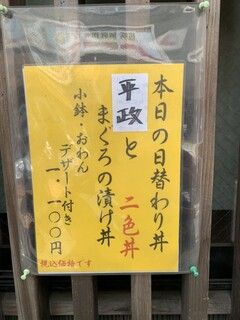 本日の日替わり丼
平政と二色丼
まぐろの漬け丼
小鉢・おわん
デザート付き
一、一〇〇円
税込価格です